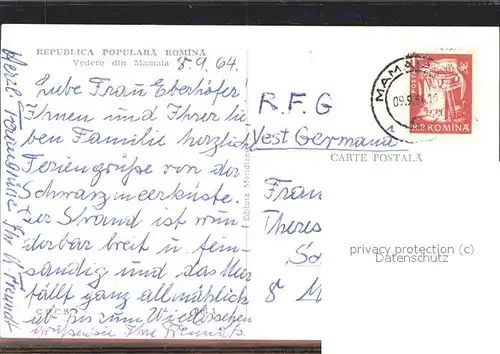 REPUBLICA POPULARĂ ROMÎNA
Vedere din Mamaia
8.9.64.
Liebe Frau Eberhöfer!
Ihnen und Ihrer lie
ben Familie herzliche
Feriengrüße von der
Schwarzmeerküste.
Der Strand ist wun
derbar breit u. fein-
sandig und das Meer
fällt ganz allmählich
ab. Bis zum Wiedersehen
Ihre
Herzl.
Ihr
Editura Meridiane
C.P.C.S.
R.F.G
Vest Germania
CARTE POSTALĂ
Fran
Theres
So
8 M
MAMAIA
09.9.64
POSTA
ROMINA
privacy protection (c)
Datenschutz